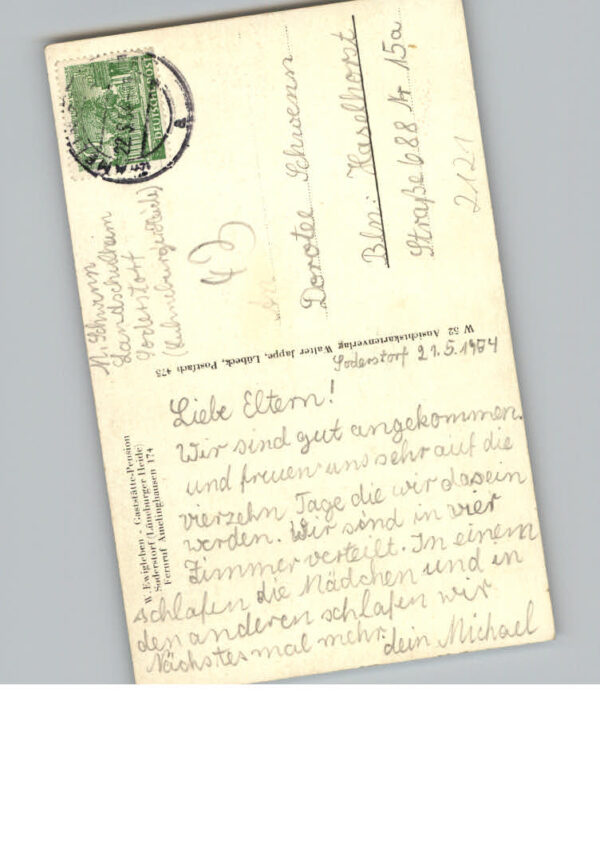 W. Ewigleben - Gaststätte-Pension
Soderstorf (Lüneburger Heide)
Fernruf Amelinghausen 174
Soderstorf 21.5.1954
Liebe Eltern!
Wir sind gut angekommen.
und freuen uns sehr auf die
vierzehn Tage die wir dasein
werden. Wir sind in vier
Zimmer verteilt. In einem
schlafen die Mädchen und in
den anderen schlafen wir
Nächstesmal mehr. dein Michael
W 52 Ansichtskartenverlag Walter Jappe, Lübeck, Postfach 473
DEUTSCHE POST
22.5.54
a
M. Schwenn
Landschulheim
Soderstorf
Dorotee Schwenn
Bln: Haselhorst
Straße 688 Nr 15a
2121